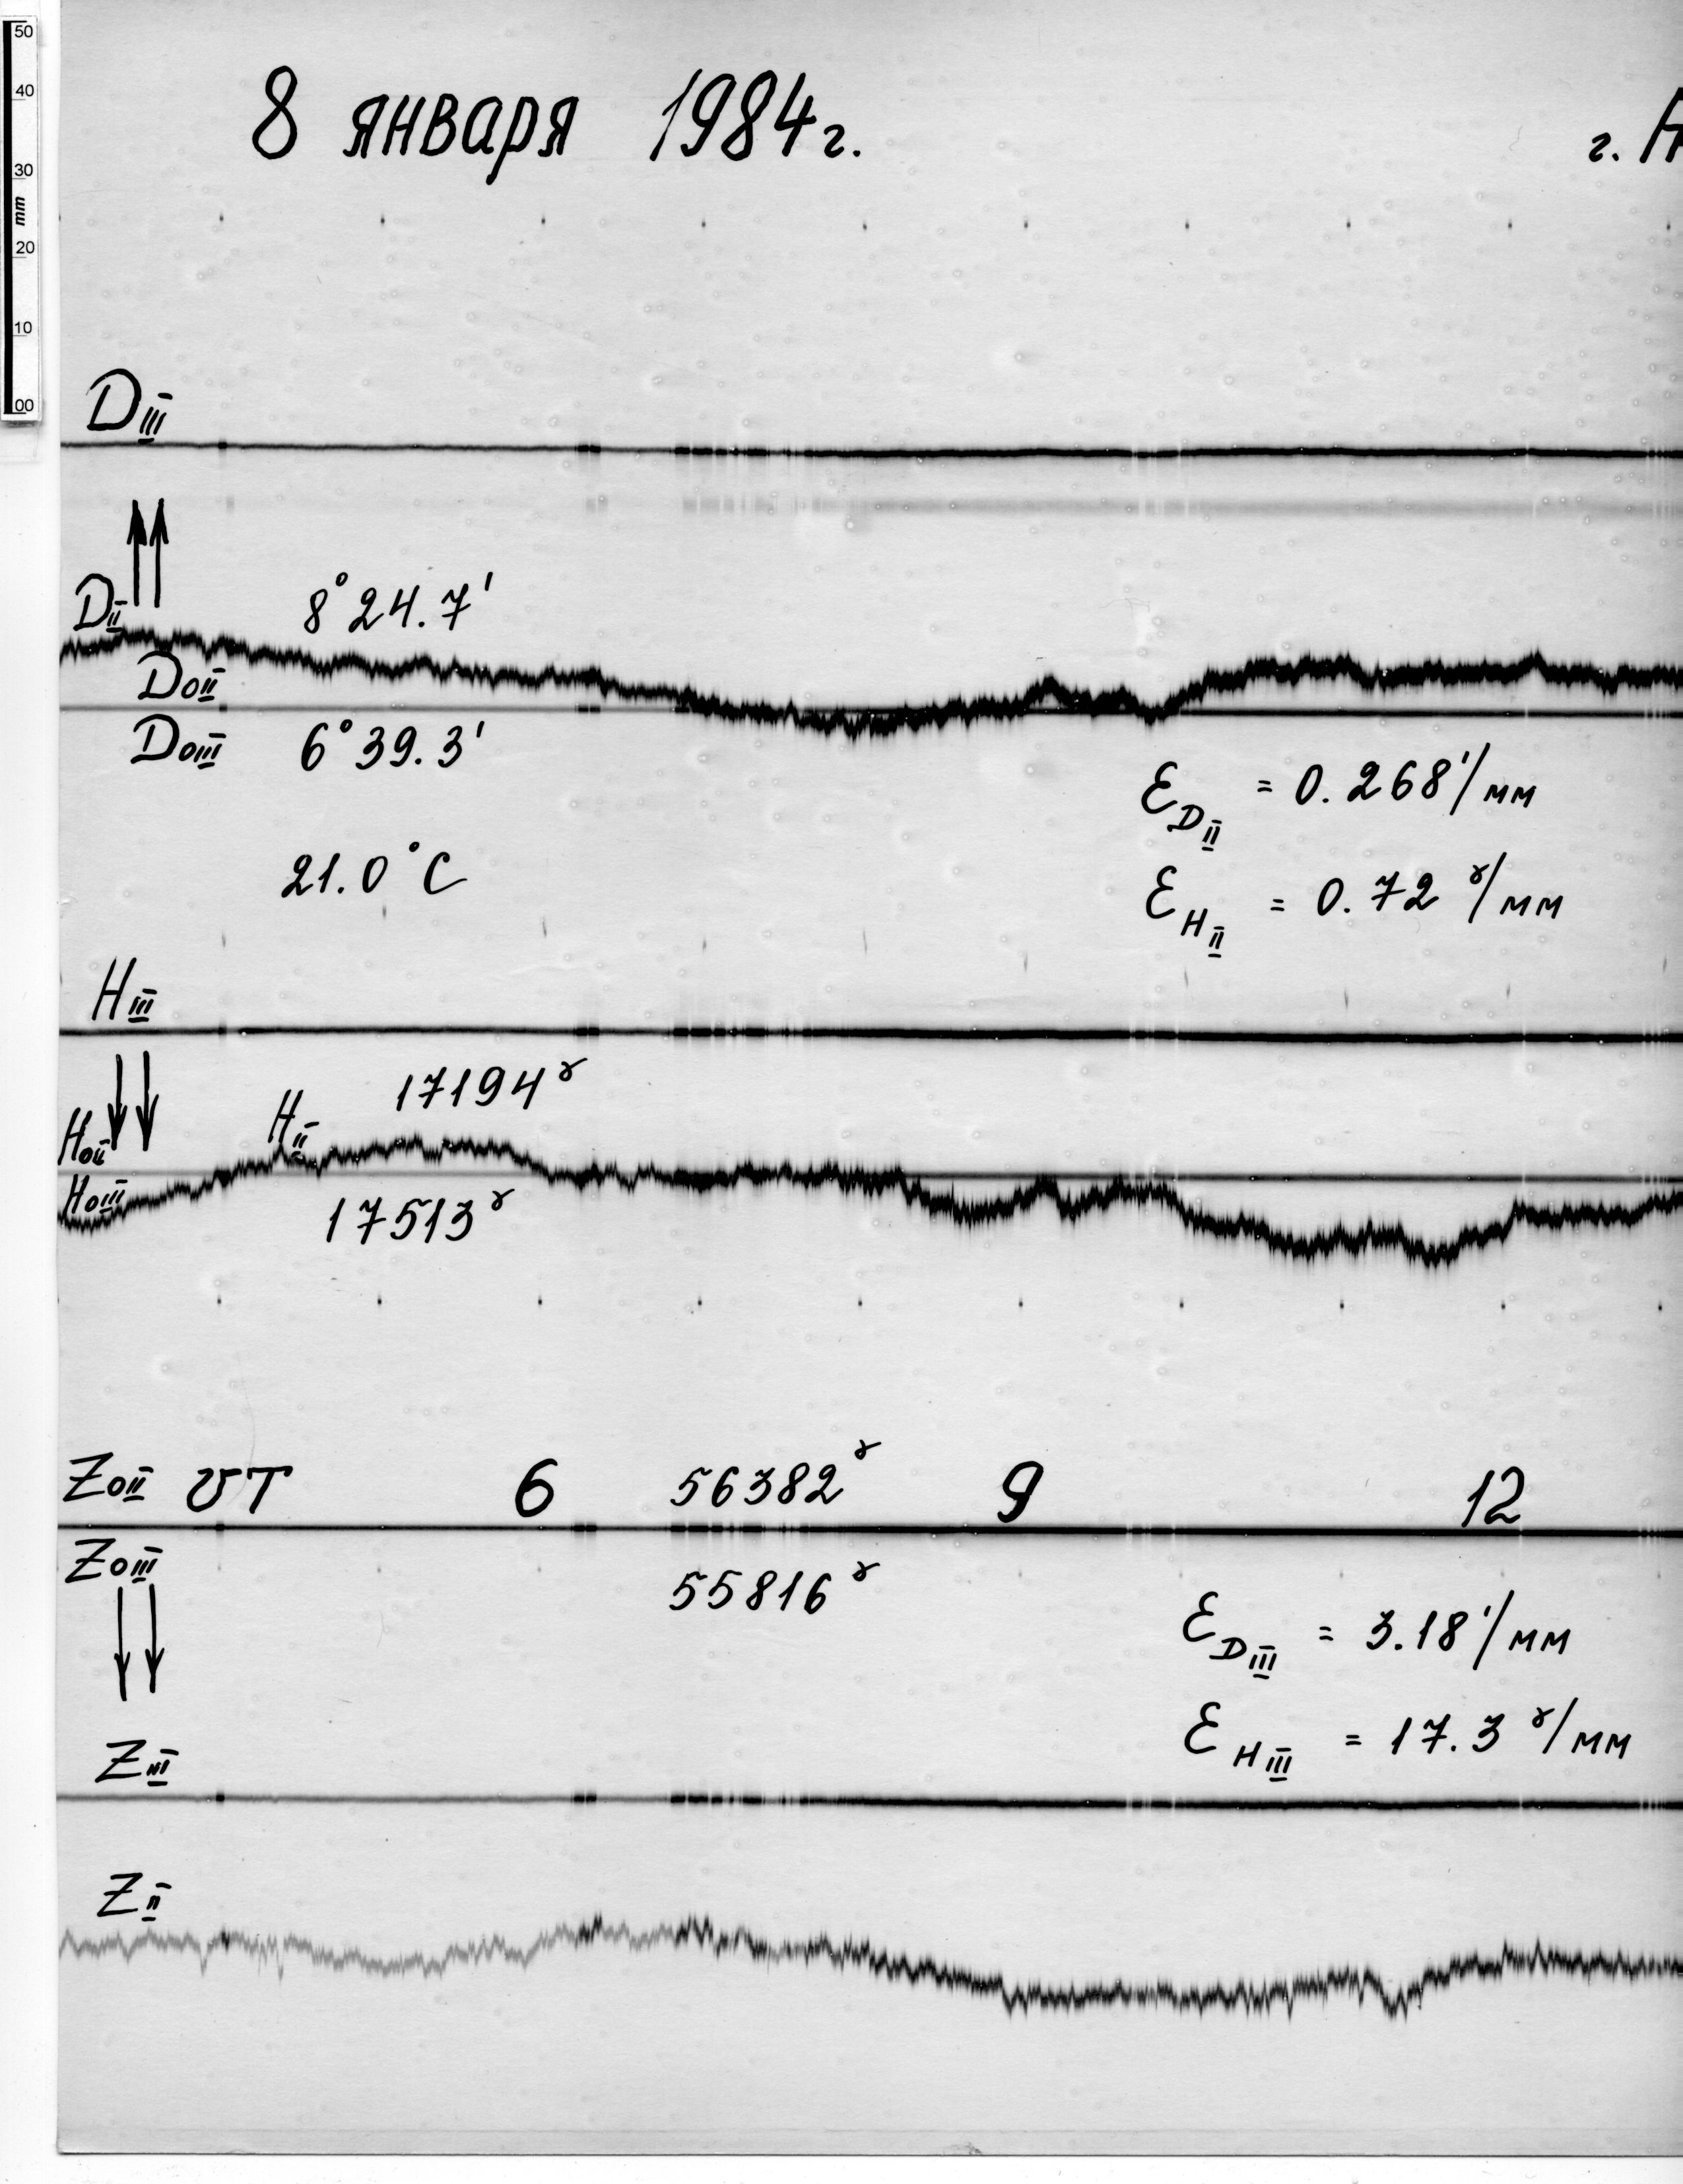 50
40
30
mm
20
10
00
8 января 1984г.
г.
D III
D II
8°24.7'
D0 II
D0 III 6°39.3'
ε D II = 0.268'/мм
21.0°C
ε H II = 0.72 γ/мм
H III
17194 γ
H II
H0 II
H0 III
17513 γ
Z0 II UT 6 56382 γ 9 12
Z0 III
55816 γ
ε D III = 3.18'/мм
ε H III = 17.3 γ/мм
Z III
Z II